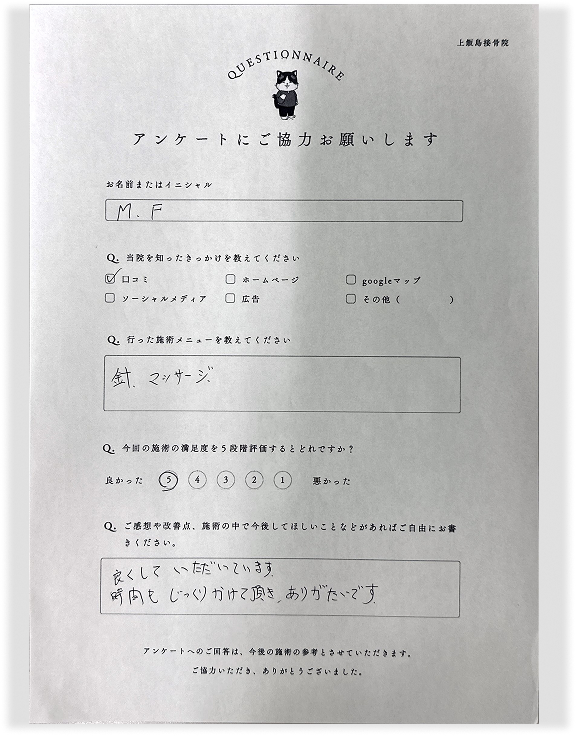 上飯島接骨院
QUESTIONNAIRE
アンケートにご協力お願いします
お名前またはイニシャル
M. F
Q. 当院を知ったきっかけを教えてください
口コミ ホームページ googleマップ
ソーシャルメディア 広告 その他（ ）
Q. 行った施術メニューを教えてください
針、マッサージ.
Q. 今回の施術の満足度を5段階評価するとどれですか？
良かった 5 4 3 2 1 悪かった
Q. ご感想や改善点、施術の中で今後してほしいことなどがあればご自由にお書
きください。
良くして いただいています.
時間も じっくりかけて頂き、ありがたいです.
アンケートへのご回答は、今後の施術の参考とさせていただきます。
ご協力いただき、ありがとうございました。